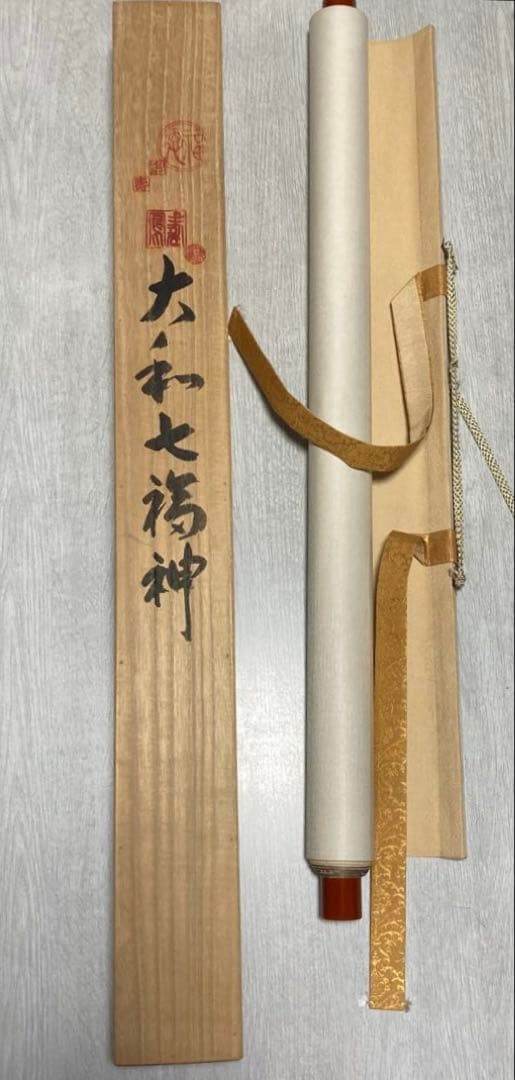 大和七福神